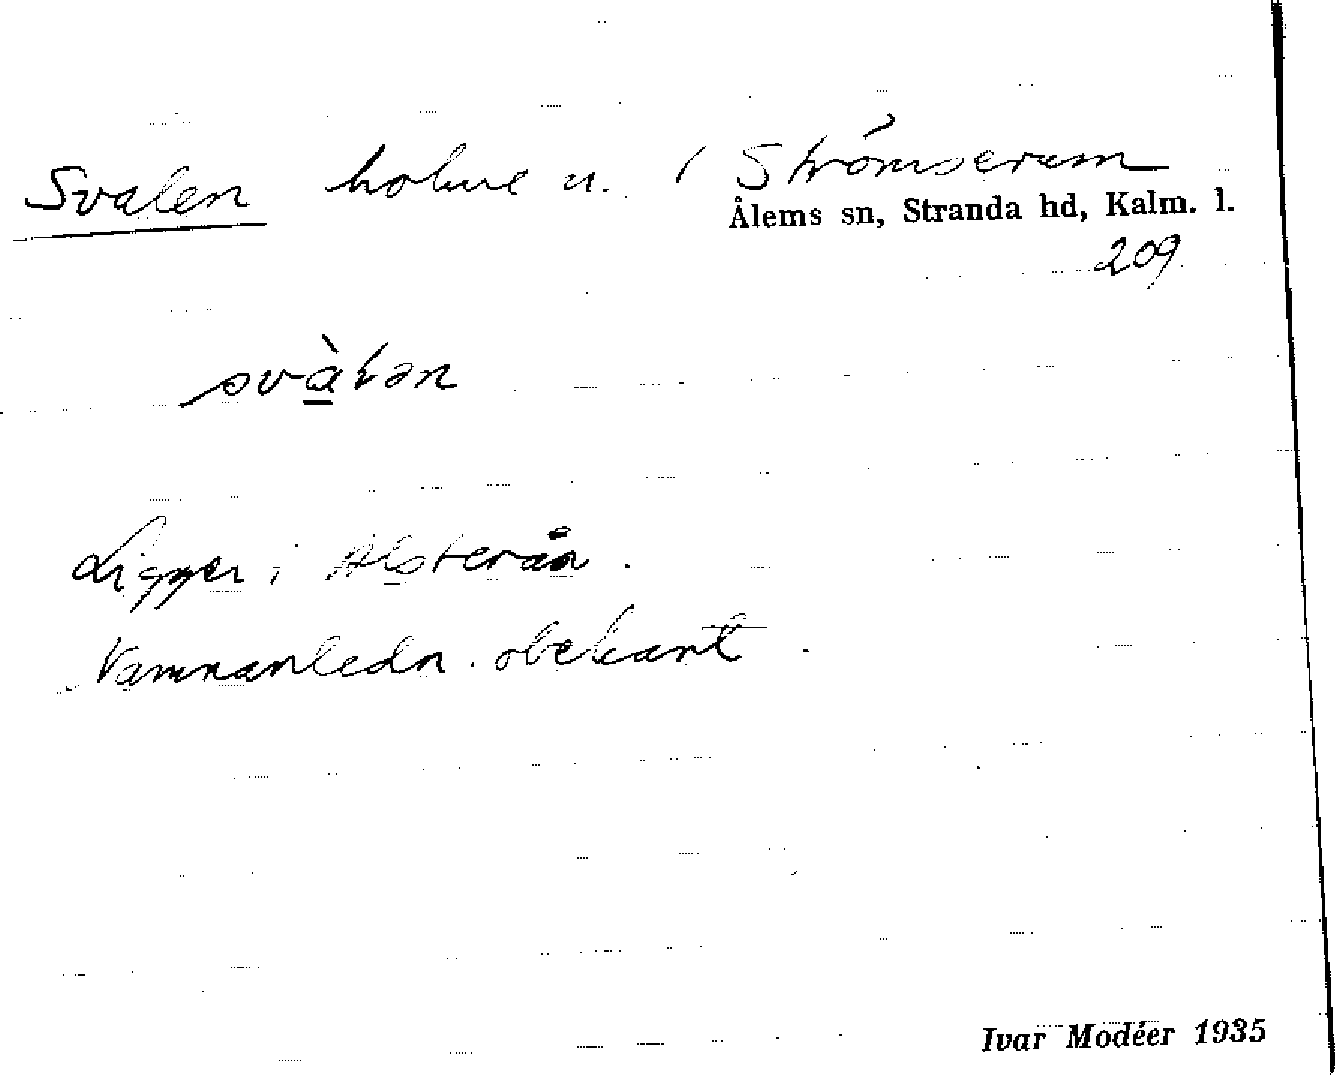 Svalen holme n. / Strömserum
Ålems sn, Stranda hd, Kalm. l.
209
svàlən
Ligger i Alsterån.
Namnanledn. obekant.
Ivar Modéer 1935